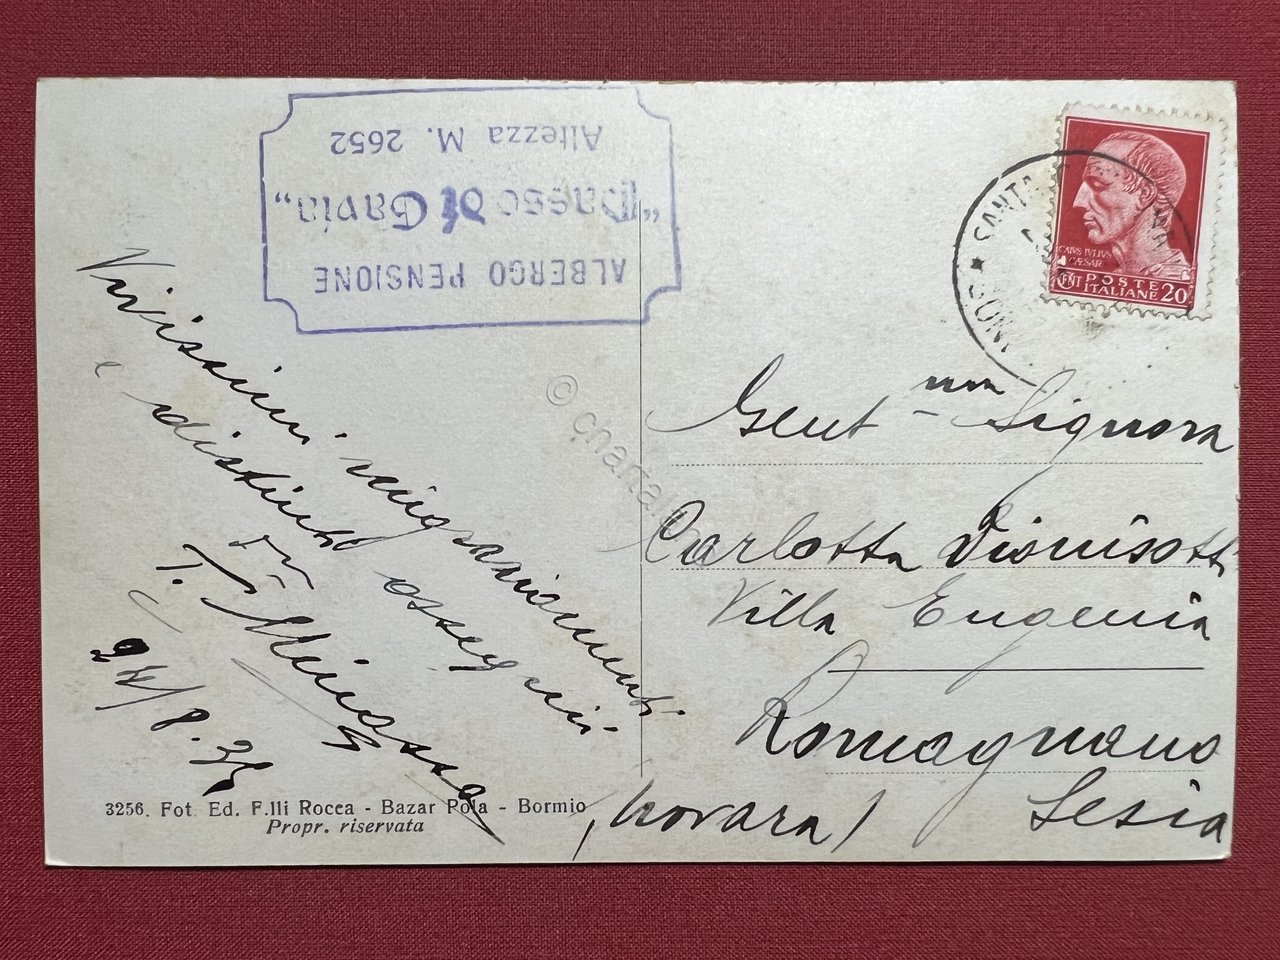 ALBERGO PENSIONE
"Passo di Gavia„
Altezza M. 2652
SANTA
CAIVS IVLIVS
CÆSAR
CENT. POSTE
ITALIANE 20
Vivissimi ringraziamenti
e distinti ossequi
T. Mi
24/8.35
Gent ma Signora
Carlotta Dionisotti
Villa Eugenia
Romagnano
Sesia
(Novara)
3256. Fot. Ed. F.lli Rocca - Bazar Pola - Bormio
Propr. riservata
© charta